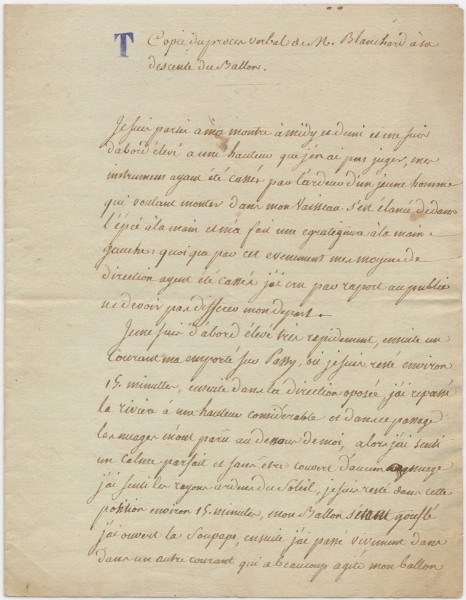 T
Copie du procès verbal de M. Blanchard à sa
descente du Ballon.
Je suis parti à ma montre à midy et demi et me suis
d'abord élevé a une hauteur que j'en ai pu juger, mes
instrumens ayant été cassés par l'ardeur d'un jeune homme
qui voulant monter dans mon Vaisseau s'est élancé dedans
l'épée à la main et m'a fait une egratignure à la main
gauche; quoique par cet evenement mes moyens de
direction ayent été cassés j'ai cru par raport au public
ne devoir pas différer mon depart.
Je me suis d'abord élevé très rapidement, ensuite un
Courant m'a emporté sur Passy, où je suis resté environ
15. minuttes, ensuite dans la direction oposée, j'ai repassé
la riviere à une hauteur considérable et dans ce passage
les nuages m'ont paru au dessous de moi, alors j'ai senti
un calme parfait et sans être couvert d'aucun nuage
j'ai senti les rayons ardens du Soleil, je suis resté dans cette
position environ 15 minuttes, mon Ballon étant gonflé
j'ai ouvert la Soupape, ensuite j'ai passé vivement dans
dans un autre courant qui a beaucoup agité mon ballon